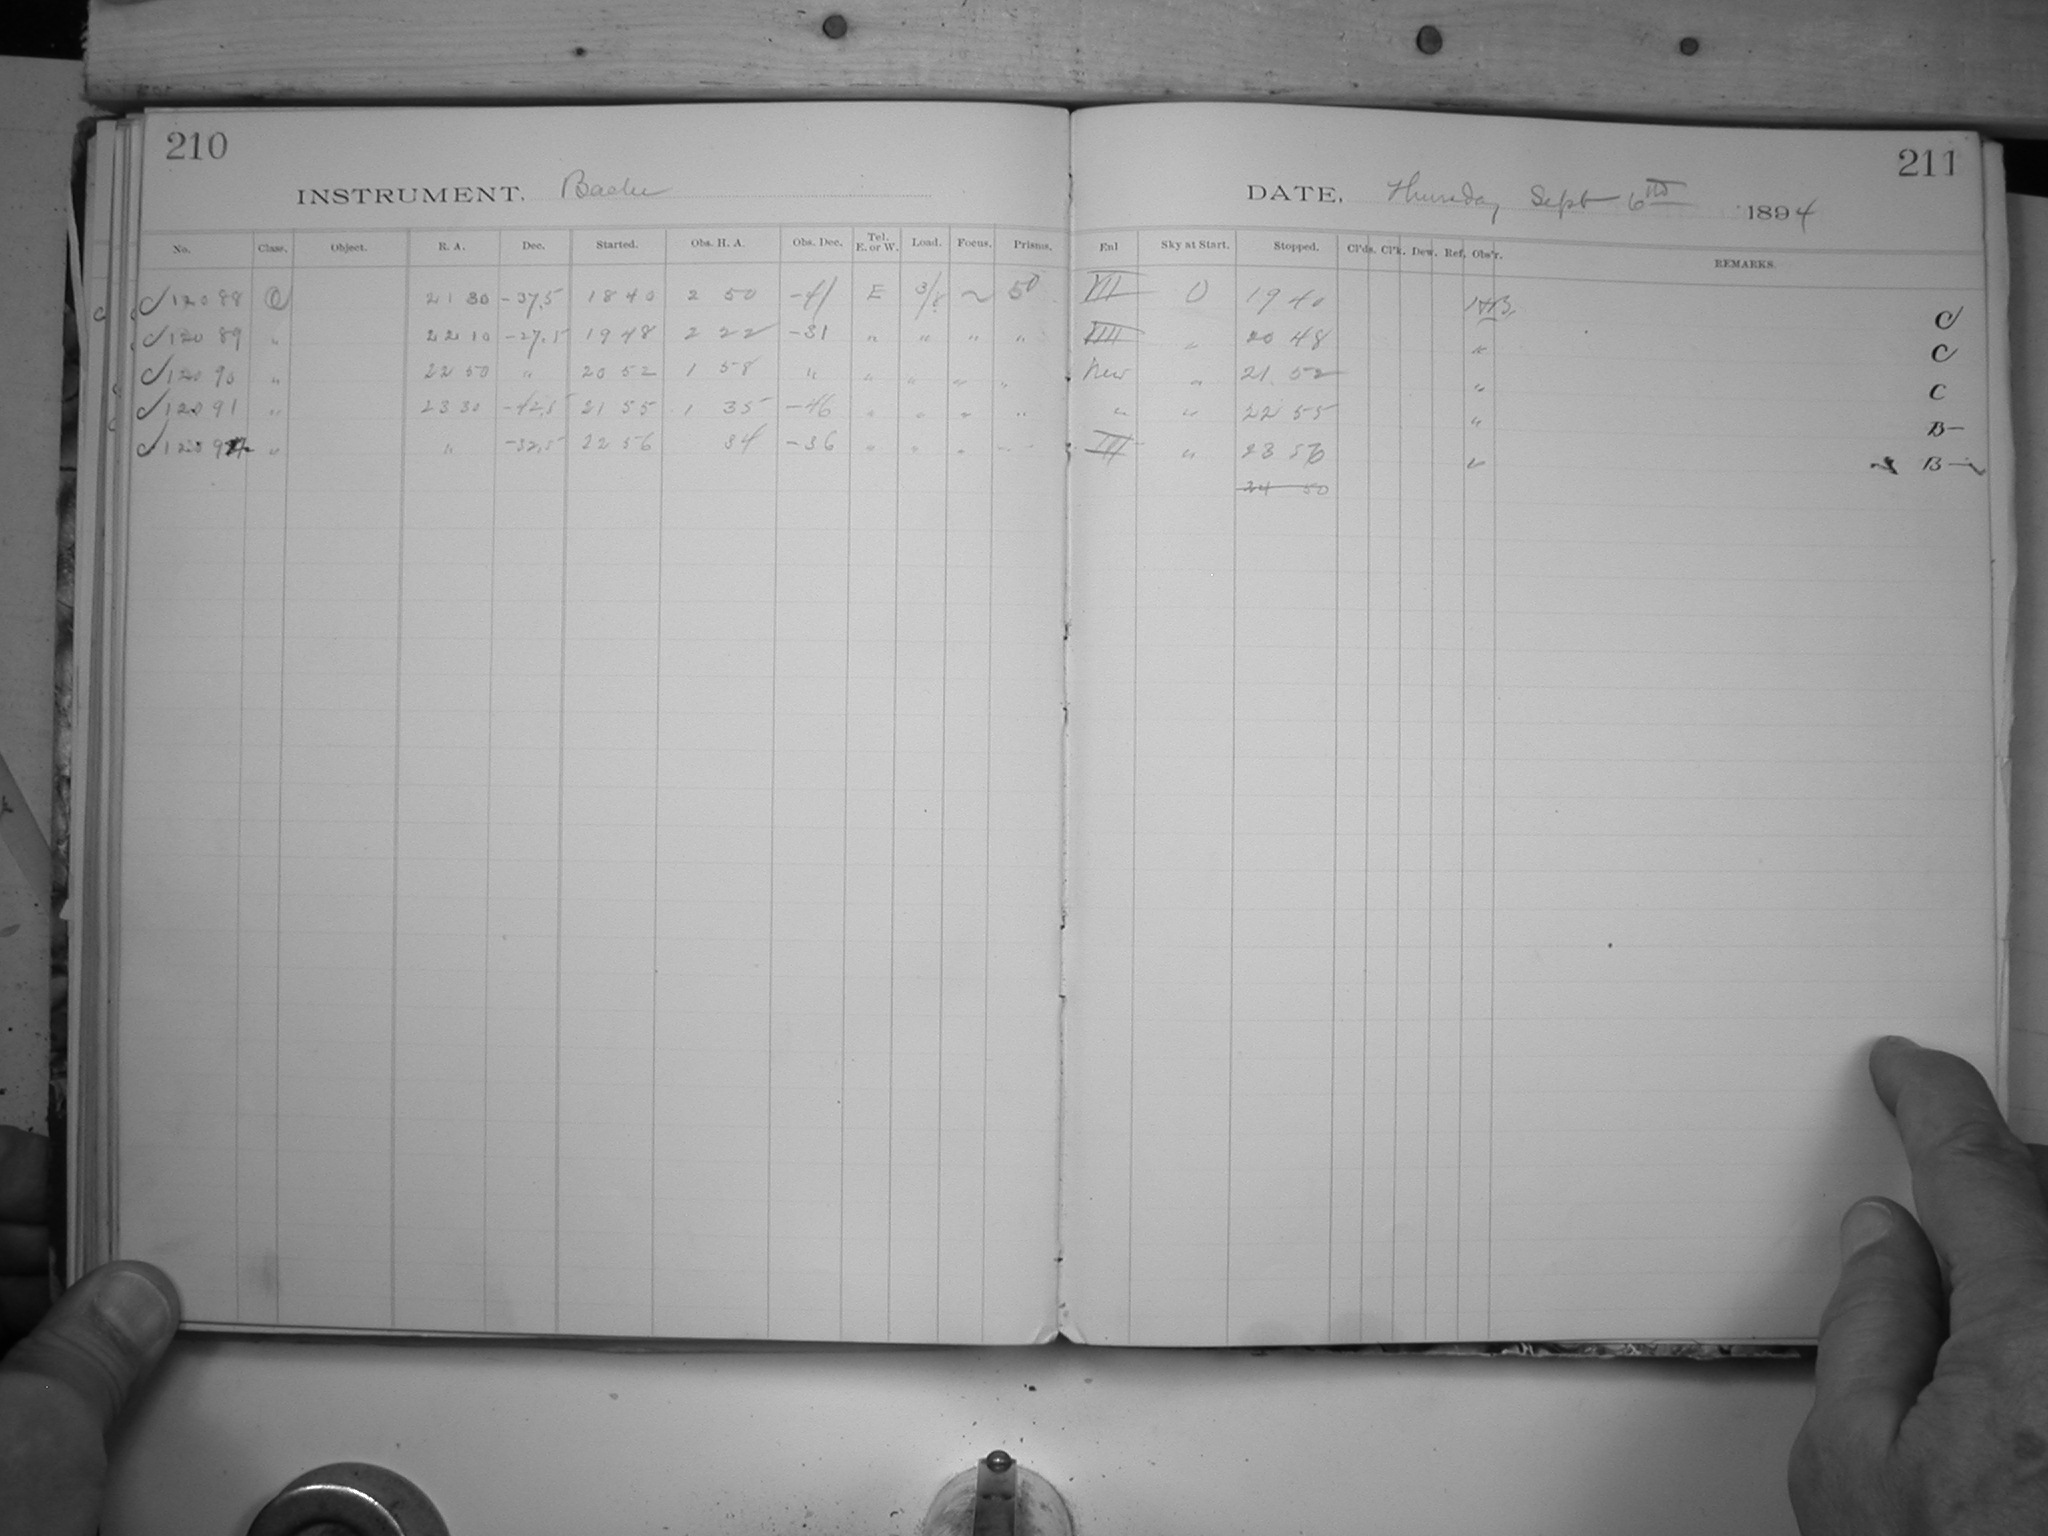 210
INSTRUMENT. Bache
No. Class. Object. R. A. Dec. Started. Obs. H. A. Obs. Dec. Tel. E. or W. Load. Focus. Prisms.
12088 O 21 30 -37.5 18 40 2 50 -41 E 3/8 ~ 50
12089 " 22 10 -27.5 19 48 2 22 -31 " " " "
12090 " 22 50 " 20 52 1 58 " " " " "
12091 " 23 30 -42.5 21 55 1 35 -46 " " " "
1209 " " -32.5 22 56 34 -36 " " "
211
DATE. Thursday Sept 6th 1894
Enl Sky at Start. Stopped. Cl'ds. Cl'k. Dew. Ref. Obs'r. REMARKS.
VII 0 19 40 C
VIII " 20 48 " C
New " 21 52 " C
" " 22 55 " B-
III " 23 56 " B-
24 50